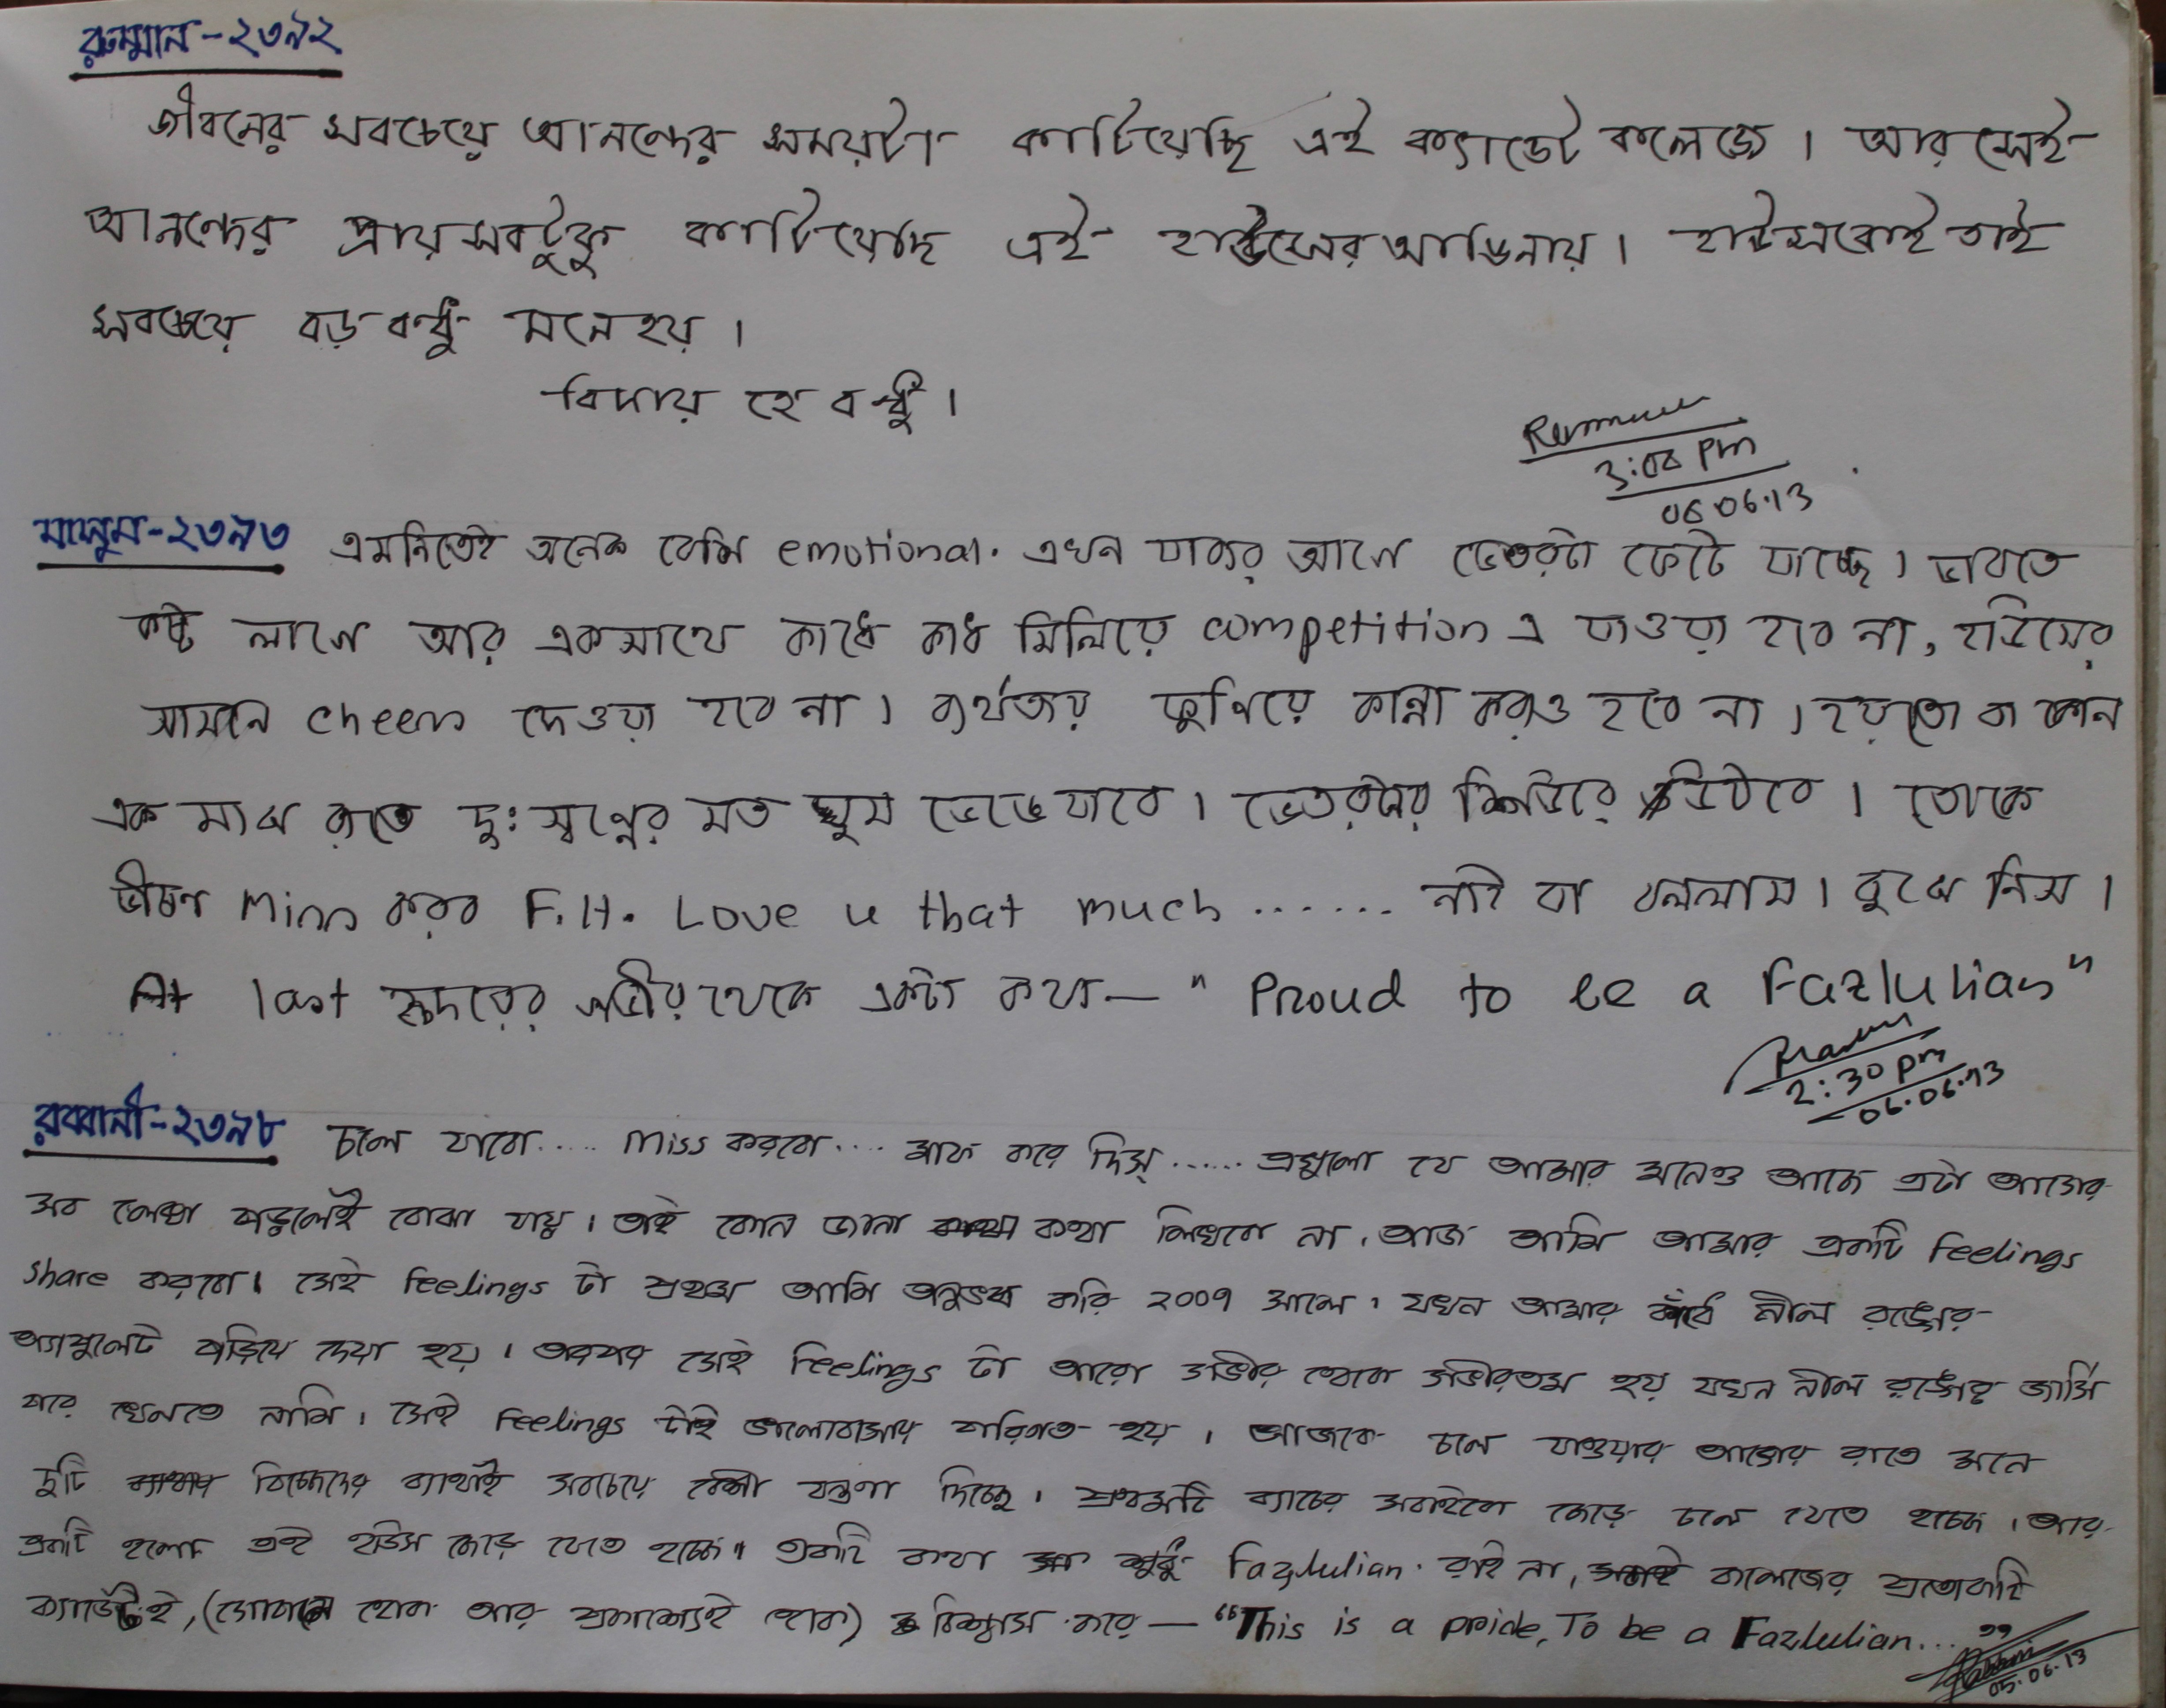 রুম্মান-২৩৯২
জীবনের সবচেয়ে আনন্দের সময়টা কাটিয়েছি এই ক্যাডেট কলেজে। আর সেই
আনন্দের প্রায় সবটুকু কাটিয়েছি এই হাউসের আঙিনায়। হাউসকেই তাই
সবচেয়ে বড় বন্ধু মনে হয়।
বিদায় হে বন্ধু।
3:08 pm
06.06.13
মাসুম-২৩৯৩ এমনিতেই অনেক বেশি emotional. এখন যাবার আগে ভেতরটা ফেটে যাচ্ছে। ভাবতে
কষ্ট লাগে আর একসাথে কাধে কাধ মিলিয়ে competition এ যাওয়া হবে না, হাউসের
সামনে cheers দেওয়া হবে না। ব্যর্থতায় ফুপিয়ে কান্না করাও হবে না। হয়তো বা কোন
এক মাঝ রাতে দুঃস্বপ্নের মত ঘুম ভেঙে যাবে। ভেতরটা শিউরে উঠবে। তোকে
ভীষণ miss করব F.H. Love u that much ...... নাই বা বললাম। বুঝে নিস।
At last হৃদয়ের গভীর থেকে একটা কথা— "Proud to be a Fazlulian"
Masum
2:30 pm
06.06.13
রব্বানী-২৩৯৮ চলে যাবো..... miss করবো.... মাফ করে দিস্...... এগুলো যে আমার মনেও আছে এটা আগের
সব লেখা পড়লেই বোঝা যায়। তাই কোন জানা কথা লিখবো না। আজ আমি আমার একটি feelings
share করবো। সেই feelings টা প্রথম আমি অনুভব করি ২০০৭ সালে। যখন আমার কাঁধে নীল রঙের
অ্যাপুলেট পড়িয়ে দেয়া হয়। তারপর সেই feelings টা আরো গভীর থেকে গভীরতম হয় যখন নীল রঙের জার্সি
পরে খেলতে নামি। সেই feelings টাই ভালোবাসায় পরিণত হয়। আজকে চলে যাওয়ার আগের রাতে মনে
দুটি বিচ্ছেদের ব্যাথাই সবচেয়ে বেশী যন্ত্রণা দিচ্ছে। প্রথমটি ব্যাচের সবাইকে ছেড়ে চলে যেতে হচ্ছে। আর
একটি হলো এই হাউস ছেড়ে যেতে হচ্ছে। একটি কথা শুধু Fazlulian রাই না, কলেজের প্রত্যেকটি
ক্যাডেটই, (গোপনে হোক আর প্রকাশ্যেই হোক) বিশ্বাস করে — "This is a pride, To be a Fazlulian..."
Rabbani
05.06.13